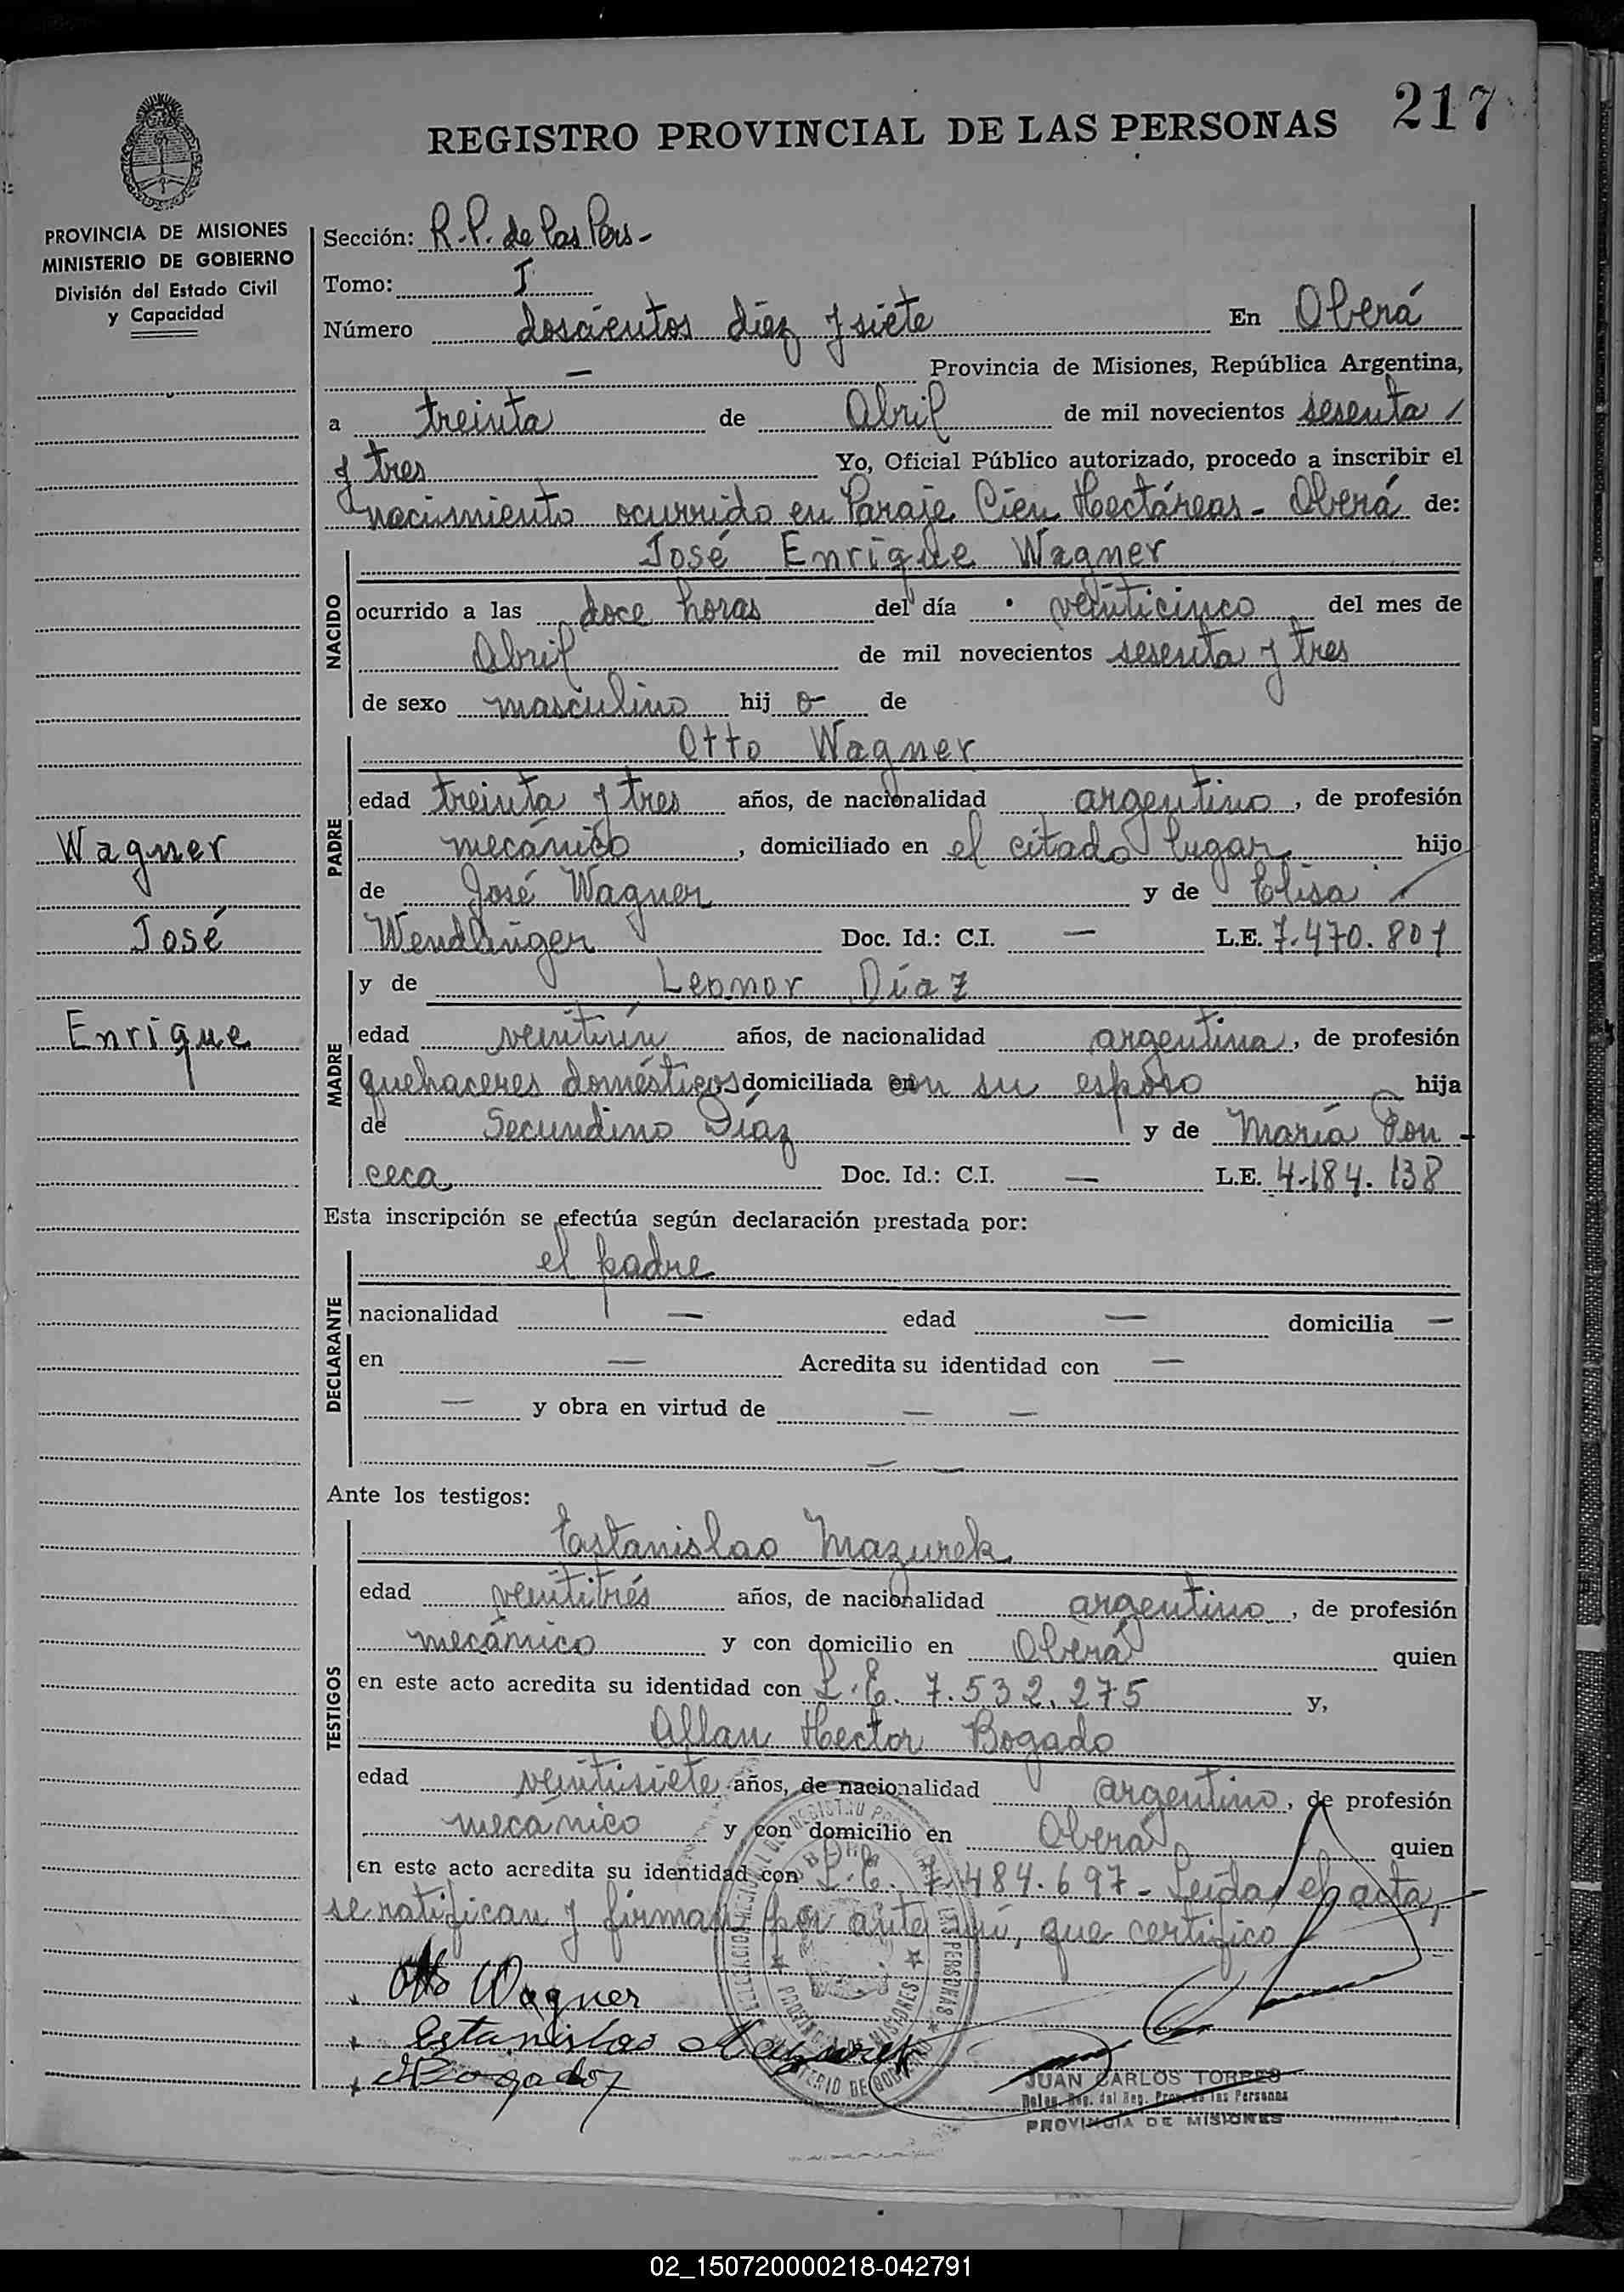 217
REGISTRO PROVINCIAL DE LAS PERSONAS
PROVINCIA DE MISIONES
MINISTERIO DE GOBIERNO
División del Estado Civil
y Capacidad
Sección: R.P. de las Pers-
Tomo: I
Número doscientos diez y siete En Oberá
— Provincia de Misiones, República Argentina,
a treinta de Abril de mil novecientos sesenta /
y tres Yo, Oficial Público autorizado, procedo a inscribir el
nacimiento ocurrido en Paraje Cien Hectáreas - Oberá de:
NACIDO
José Enrique Wagner
ocurrido a las doce horas del día veinticinco del mes de
Abril de mil novecientos sesenta y tres
de sexo masculino hij o de
PADRE
Otto Wagner
edad treinta y tres años, de nacionalidad argentino, de profesión
mecánico, domiciliado en el citado lugar hijo
de José Wagner y de Elisa
Wendlinger Doc. Id.: C.I. — L.E. 7.470.801
Wagner
José
Enrique
MADRE
y de Leonor Díaz
edad veintiún años, de nacionalidad argentina, de profesión
quehaceres domésticos domiciliada en con su esposo hija
de Secundino Díaz y de María Fon-
ceca Doc. Id.: C.I. — L.E. 4.184.138
Esta inscripción se efectúa según declaración prestada por:
DECLARANTE
el padre
nacionalidad — edad — domicilia —
en — Acredita su identidad con —
— y obra en virtud de — —
— —
Ante los testigos:
TESTIGOS
Estanislao Mazurek
edad veintitrés años, de nacionalidad argentino, de profesión
mecánico y con domicilio en Oberá quien
en este acto acredita su identidad con L.E. 7.532.275 y,
Allan Hector Bogado
edad veintisiete años, de nacionalidad argentino, de profesión
mecánico y con domicilio en Oberá quien
en este acto acredita su identidad con L.E. 7.484.697 - Leída el acta,
se ratifican y firman por ante mí, que certifico
Otto Wagner
Estanislao Mazurek
Bogado
JUAN CARLOS TORRES
Deleg. Reg. del Reg. Prov. de las Personas
PROVINCIA DE MISIONES
02_150720000218-042791